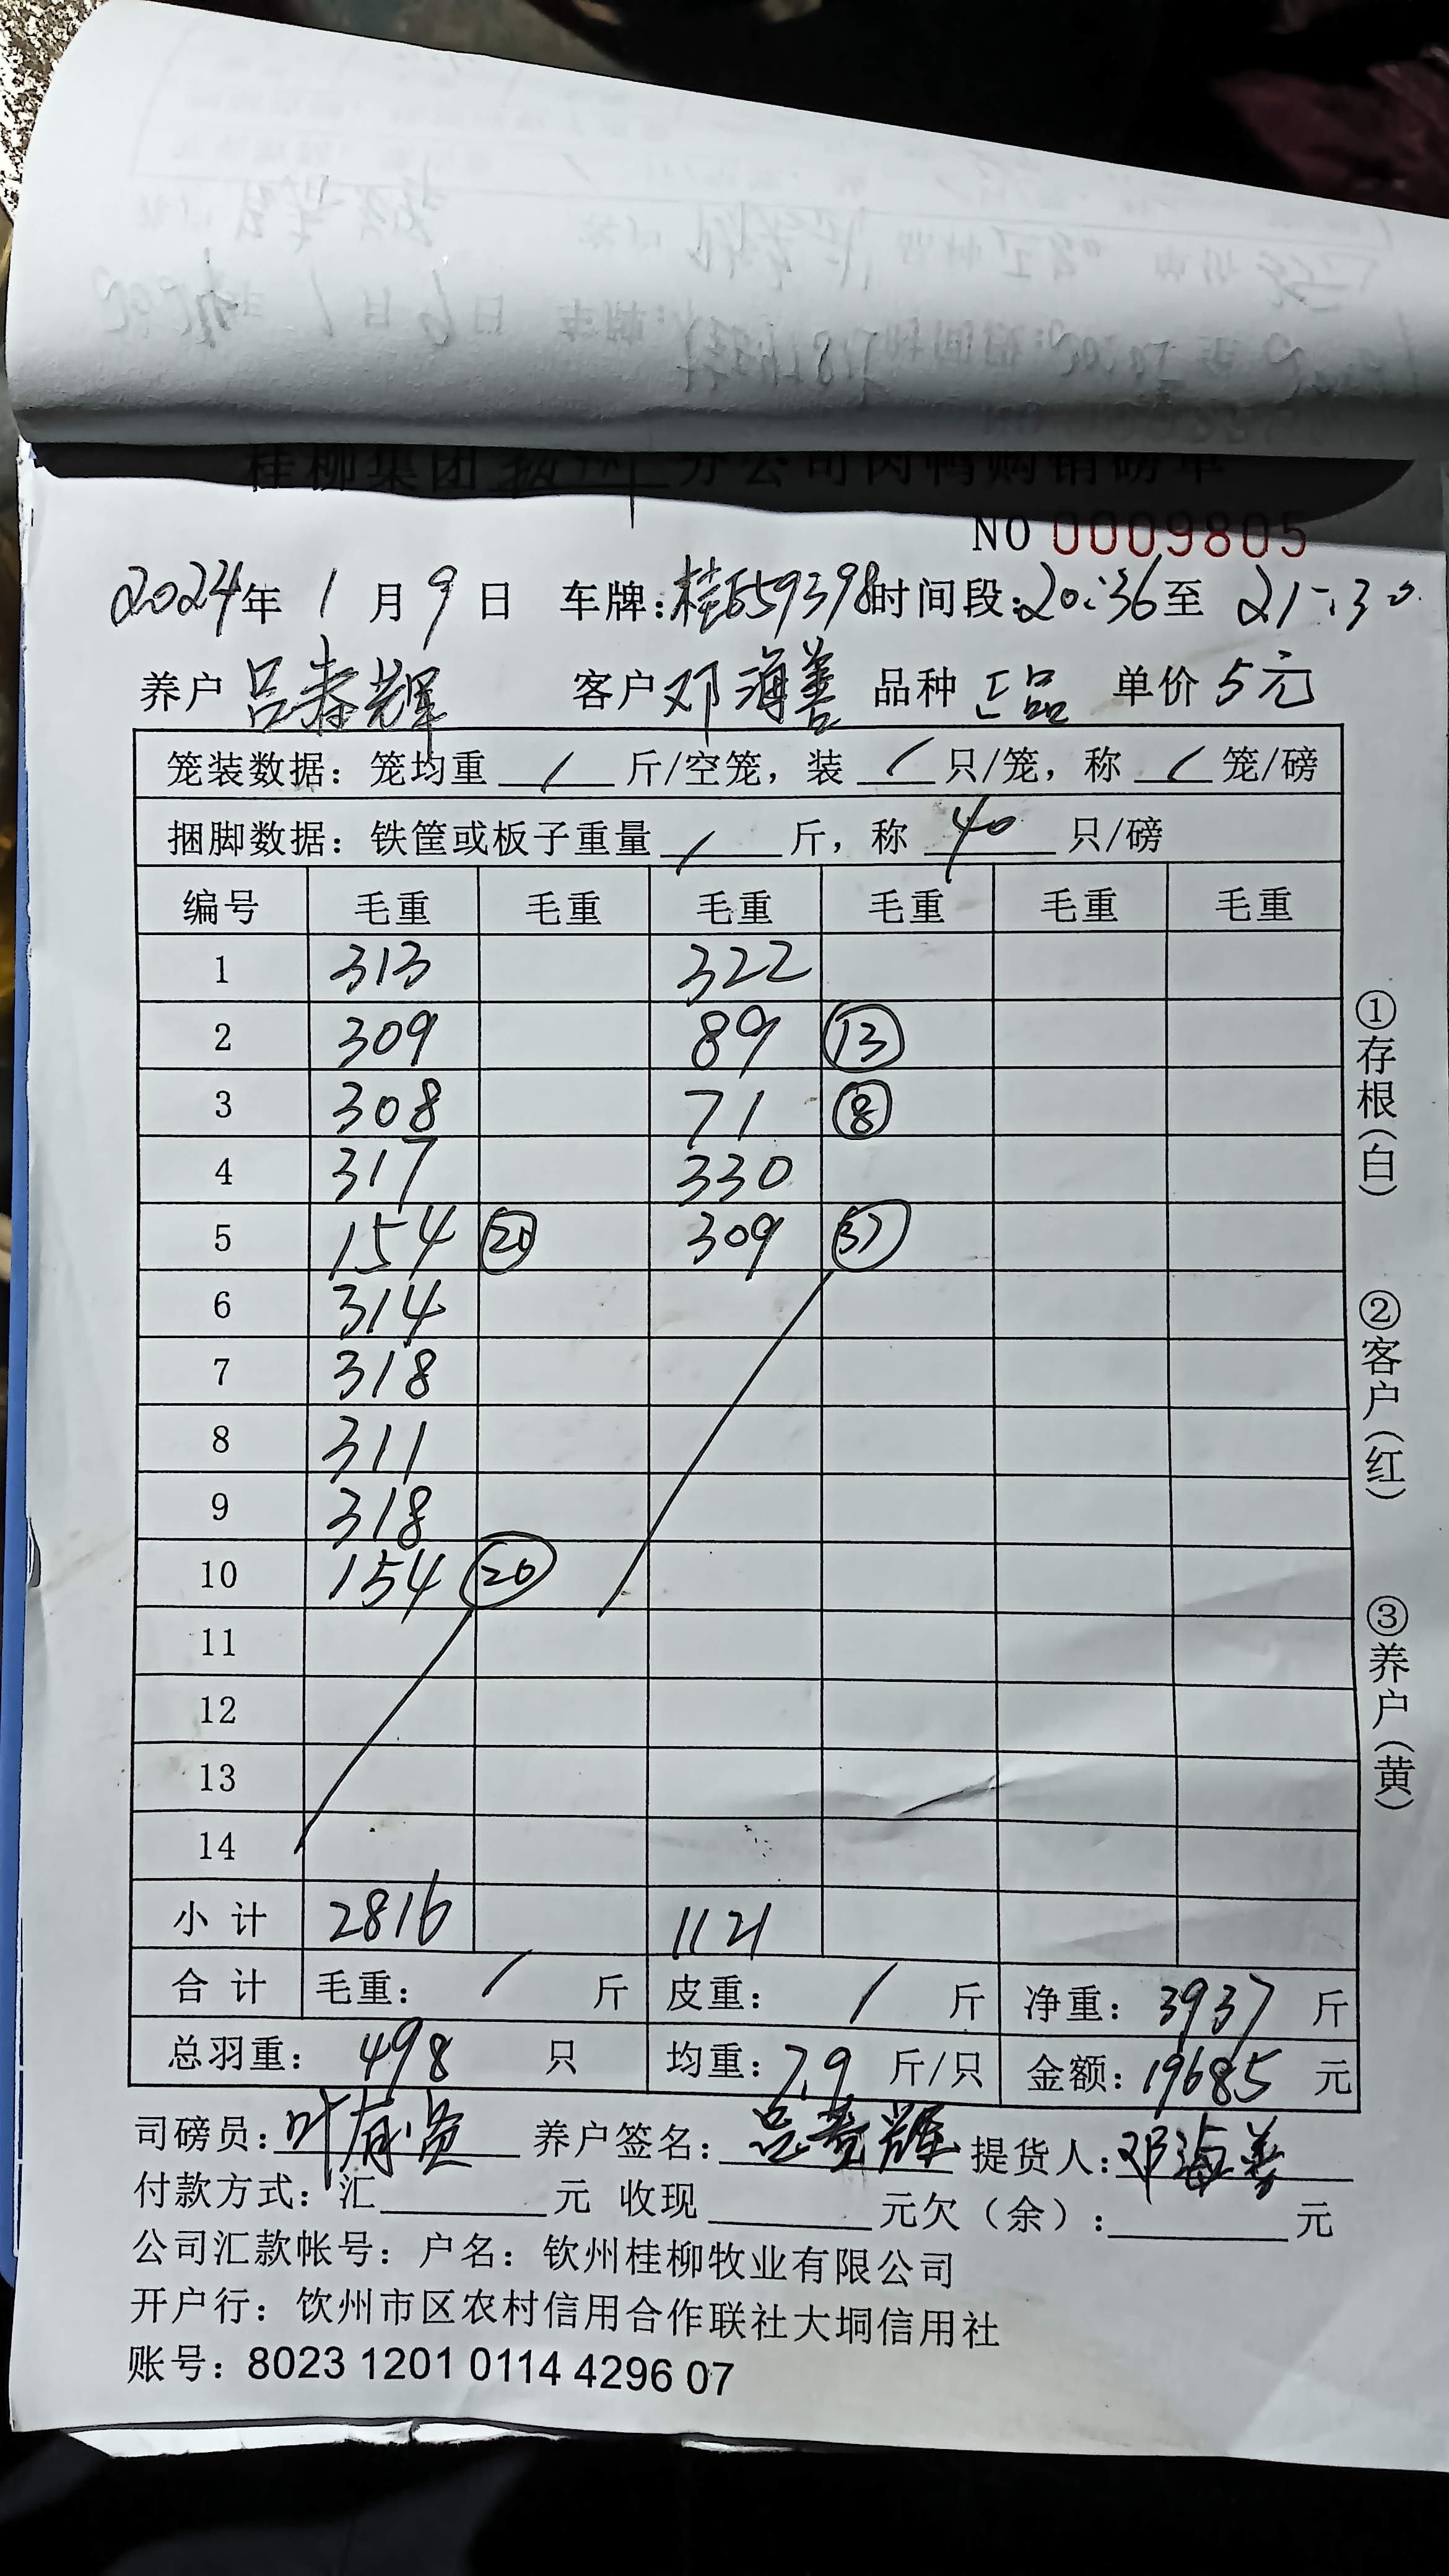 桂柳集团 分公司肉鸭购销磅单
NO 0009805
2024年 1月 9日 车牌:桂E59398 时间段:20:36至 21:30
养户 吕春辉 客户 邓海善 品种 正品 单价 5元
笼装数据: 笼均重 / 斤/空笼, 装 / 只/笼, 称 / 笼/磅
捆脚数据: 铁筐或板子重量 / 斤, 称 40 只/磅
编号 毛重 毛重 毛重 毛重 毛重 毛重
1 313 322
2 309 89 ⑬
3 308 71 ⑧
4 317 330
5 154 ⑳ 309 ㊲
6 314
7 318
8 311
9 318
10 154 ⑳
11
12
13
14
小计 2816 1121
合计 毛重: / 斤 皮重: / 斤 净重: 3937 斤
总羽重: 498 只 均重: 7.9 斤/只 金额: 19685 元
司磅员: 叶 养户签名: 吕春辉 提货人: 邓海善
付款方式: 汇 元 收现 元欠(余): 元
公司汇款帐号: 户名: 钦州桂柳牧业有限公司
开户行: 钦州市区农村信用合作联社大垌信用社
账号: 8023 1201 0114 4296 07
①存根(白)
②客户(红)
③养户(黄)